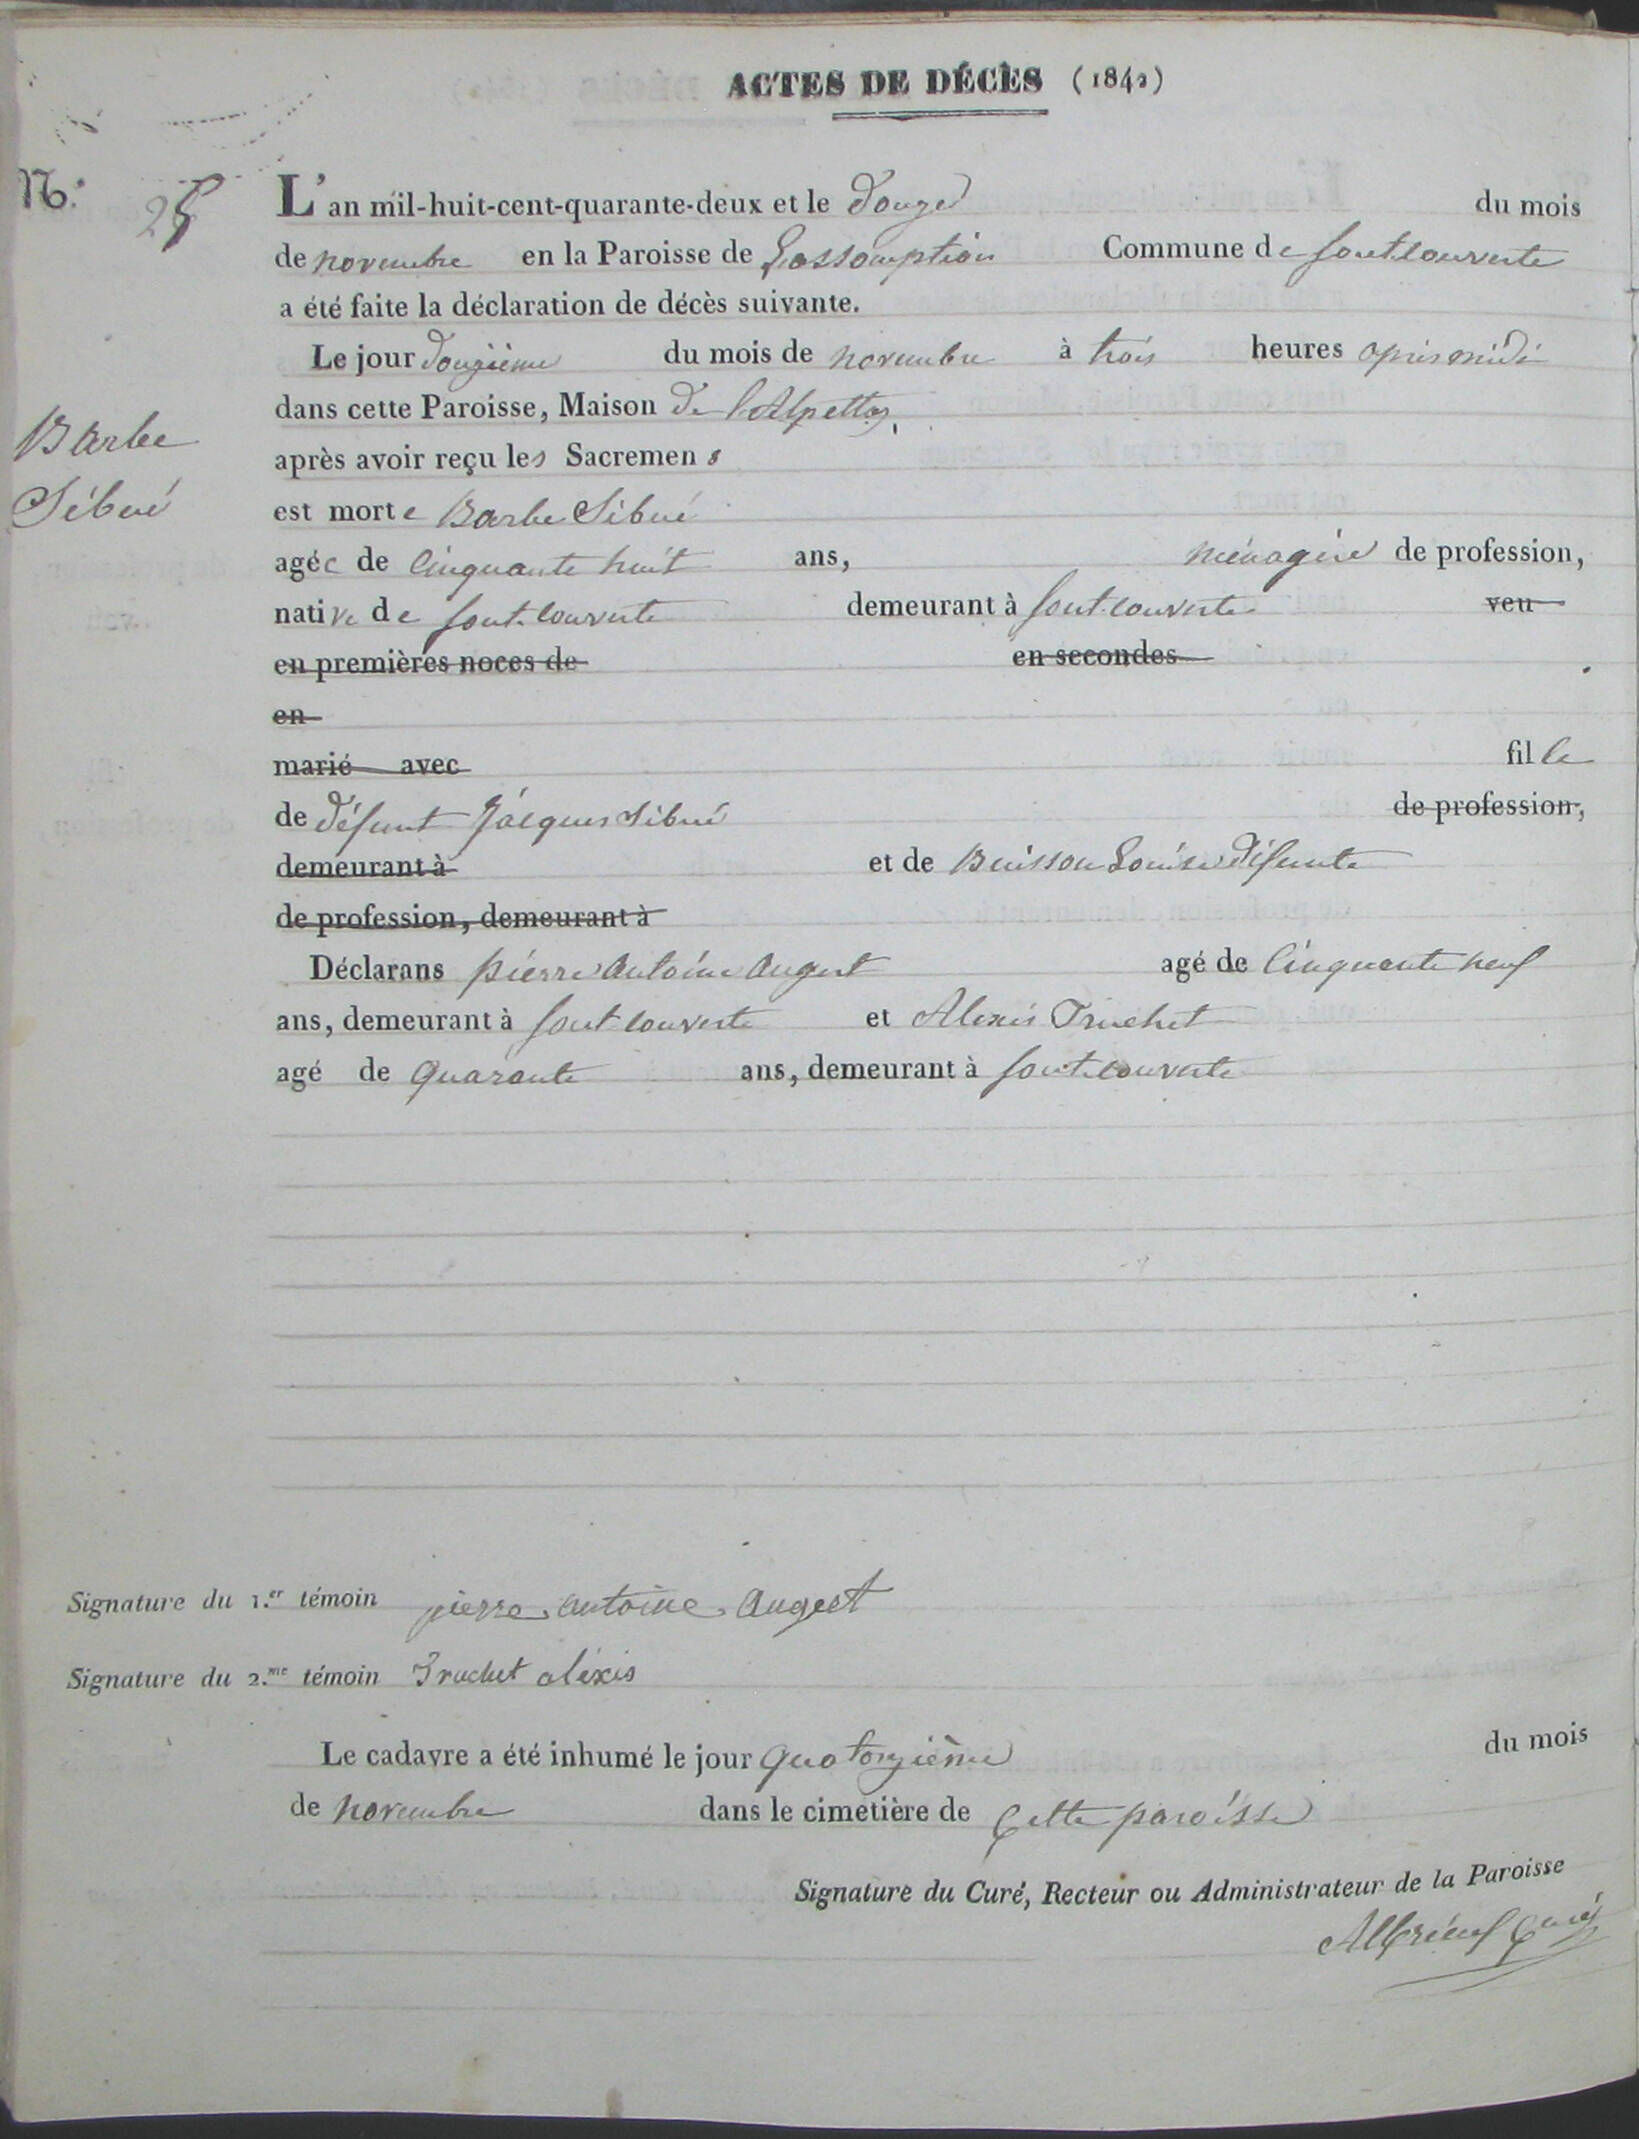 ACTES DE DÉCÈS (1842)
N.°
L'an mil-huit-cent-quarante-deux et le Douze du mois
de novembre en la Paroisse de Lassomption Commune de fontcouverte
a été faite la déclaration de décès suivante.
Le jour Douzième du mois de novembre à trois heures après midi
dans cette Paroisse, Maison De l'Alpettaz
Barbe
après avoir reçu les Sacremens
Sibué
est morte Barbe Sibué
agée de Cinquante huit ans, ménagère de profession,
native de fontcouverte demeurant à fontcouverte veu
en premières noces de en secondes
en
marié avec fille
de Défunt Jacques Sibué de profession,
demeurant à et de Buisson Louise Défunte
de profession, demeurant à
Déclarans pierre Antoine Augert agé de Cinquante neuf
ans, demeurant à fontcouverte et Alexis Truchet
agé de Quarante ans, demeurant à fontcouverte
Signature du 1.er témoin pierre antoine augert
Signature du 2.me témoin Truchet alexis
Le cadavre a été inhumé le jour quatorzième du mois
de novembre dans le cimetière de Cette paroisse
Signature du Curé, Recteur ou Administrateur de la Paroisse
Albrieux Curé